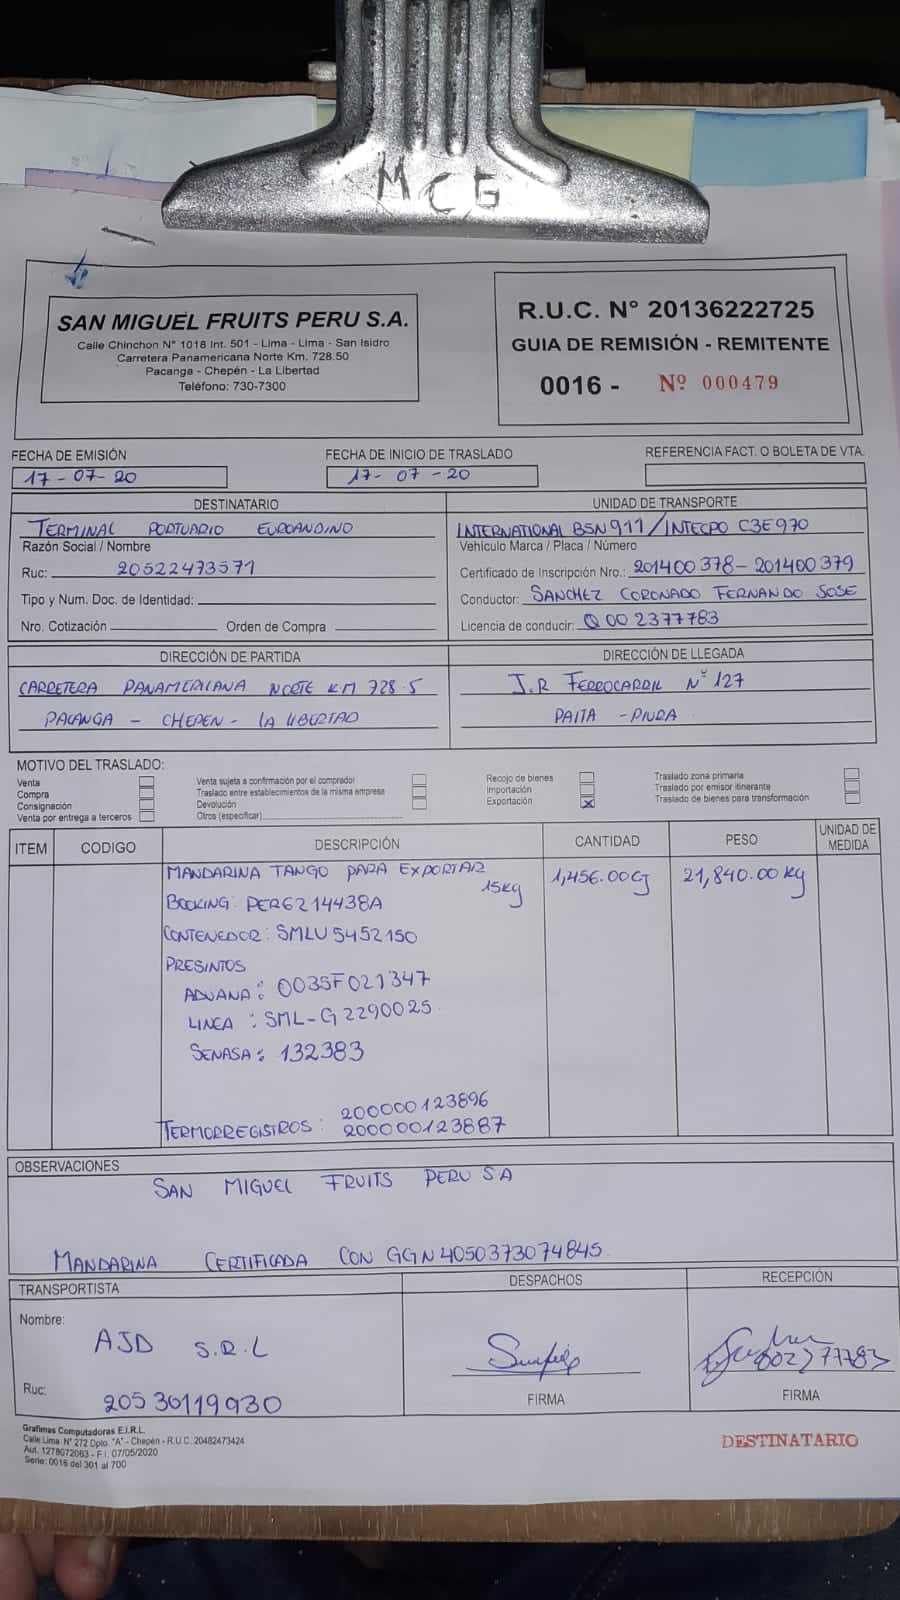 MCG
SAN MIGUEL FRUITS PERU S.A.
Calle Chinchon N° 1018 Int. 501 - Lima - Lima - San Isidro
Carretera Panamericana Norte Km. 728.50
Pacanga - Chepén - La Libertad
Teléfono: 730-7300
R.U.C. N° 20136222725
GUIA DE REMISIÓN - REMITENTE
0016 - Nº 000479
FECHA DE EMISIÓN
17-07-20
FECHA DE INICIO DE TRASLADO
17-07-20
REFERENCIA FACT. O BOLETA DE VTA.
DESTINATARIO
TERMINAL PORTUARIO EUROANDINO
Razón Social / Nombre
Ruc: 20522473571
Tipo y Num. Doc. de Identidad:
Nro. Cotización Orden de Compra
UNIDAD DE TRANSPORTE
INTERNATIONAL BSN911/INTECPO C3E970
Vehículo Marca / Placa / Número
Certificado de Inscripción Nro.: 201400378-201400379
Conductor: SANCHEZ CORONADO FERNANDO JOSE
Licencia de conducir: Q002377783
DIRECCIÓN DE PARTIDA
CARRETERA PANAMERICANA NORTE KM 728.5
PACANGA - CHEPEN - LA LIBERTAD
DIRECCIÓN DE LLEGADA
J.R FERROCARRIL N° 127
PAITA - PIURA
MOTIVO DEL TRASLADO:
Venta
Compra
Consignación
Venta por entrega a terceros
Venta sujeta a confirmación por el comprador
Traslado entre establecimientos de la misma empresa
Devolución
Otros (especificar)
Recojo de bienes
Importación
Exportación X
Traslado zona primaria
Traslado por emisor itinerante
Traslado de bienes para transformación
ITEM CODIGO DESCRIPCIÓN CANTIDAD PESO UNIDAD DE MEDIDA
MANDARINA TANGO PARA EXPORTAR 15kg 1,456.00CJ 21,840.00 Kg
BOOKING: PER6214438A
CONTENEDOR: SMLU5452150
PRESINTOS
ADUANA: 0035F021347
LINEA : SML-G2290025
SENASA: 132383
TERMORREGISTROS: 200000123896
200000123887
OBSERVACIONES
SAN MIGUEL FRUITS PERU SA
MANDARINA CERTIFICADA CON GGN4050373074845
TRANSPORTISTA
Nombre:
AJD S.R.L
Ruc: 20530119930
DESPACHOS
FIRMA
RECEPCIÓN
002377783
FIRMA
Grafimas Computadoras E.I.R.L.
Calle Lima N° 272 Dpto. "A" - Chepén - R.U.C. 20482473424
Aut. 1278072063 - F.I. 07/05/2020
Serie: 0016 del 301 al 700
DESTINATARIO